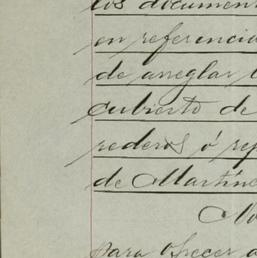 los document
en referencia
de arreglar
cubierto de
rederos ó rep
de Martíne
No
para ofrecer a